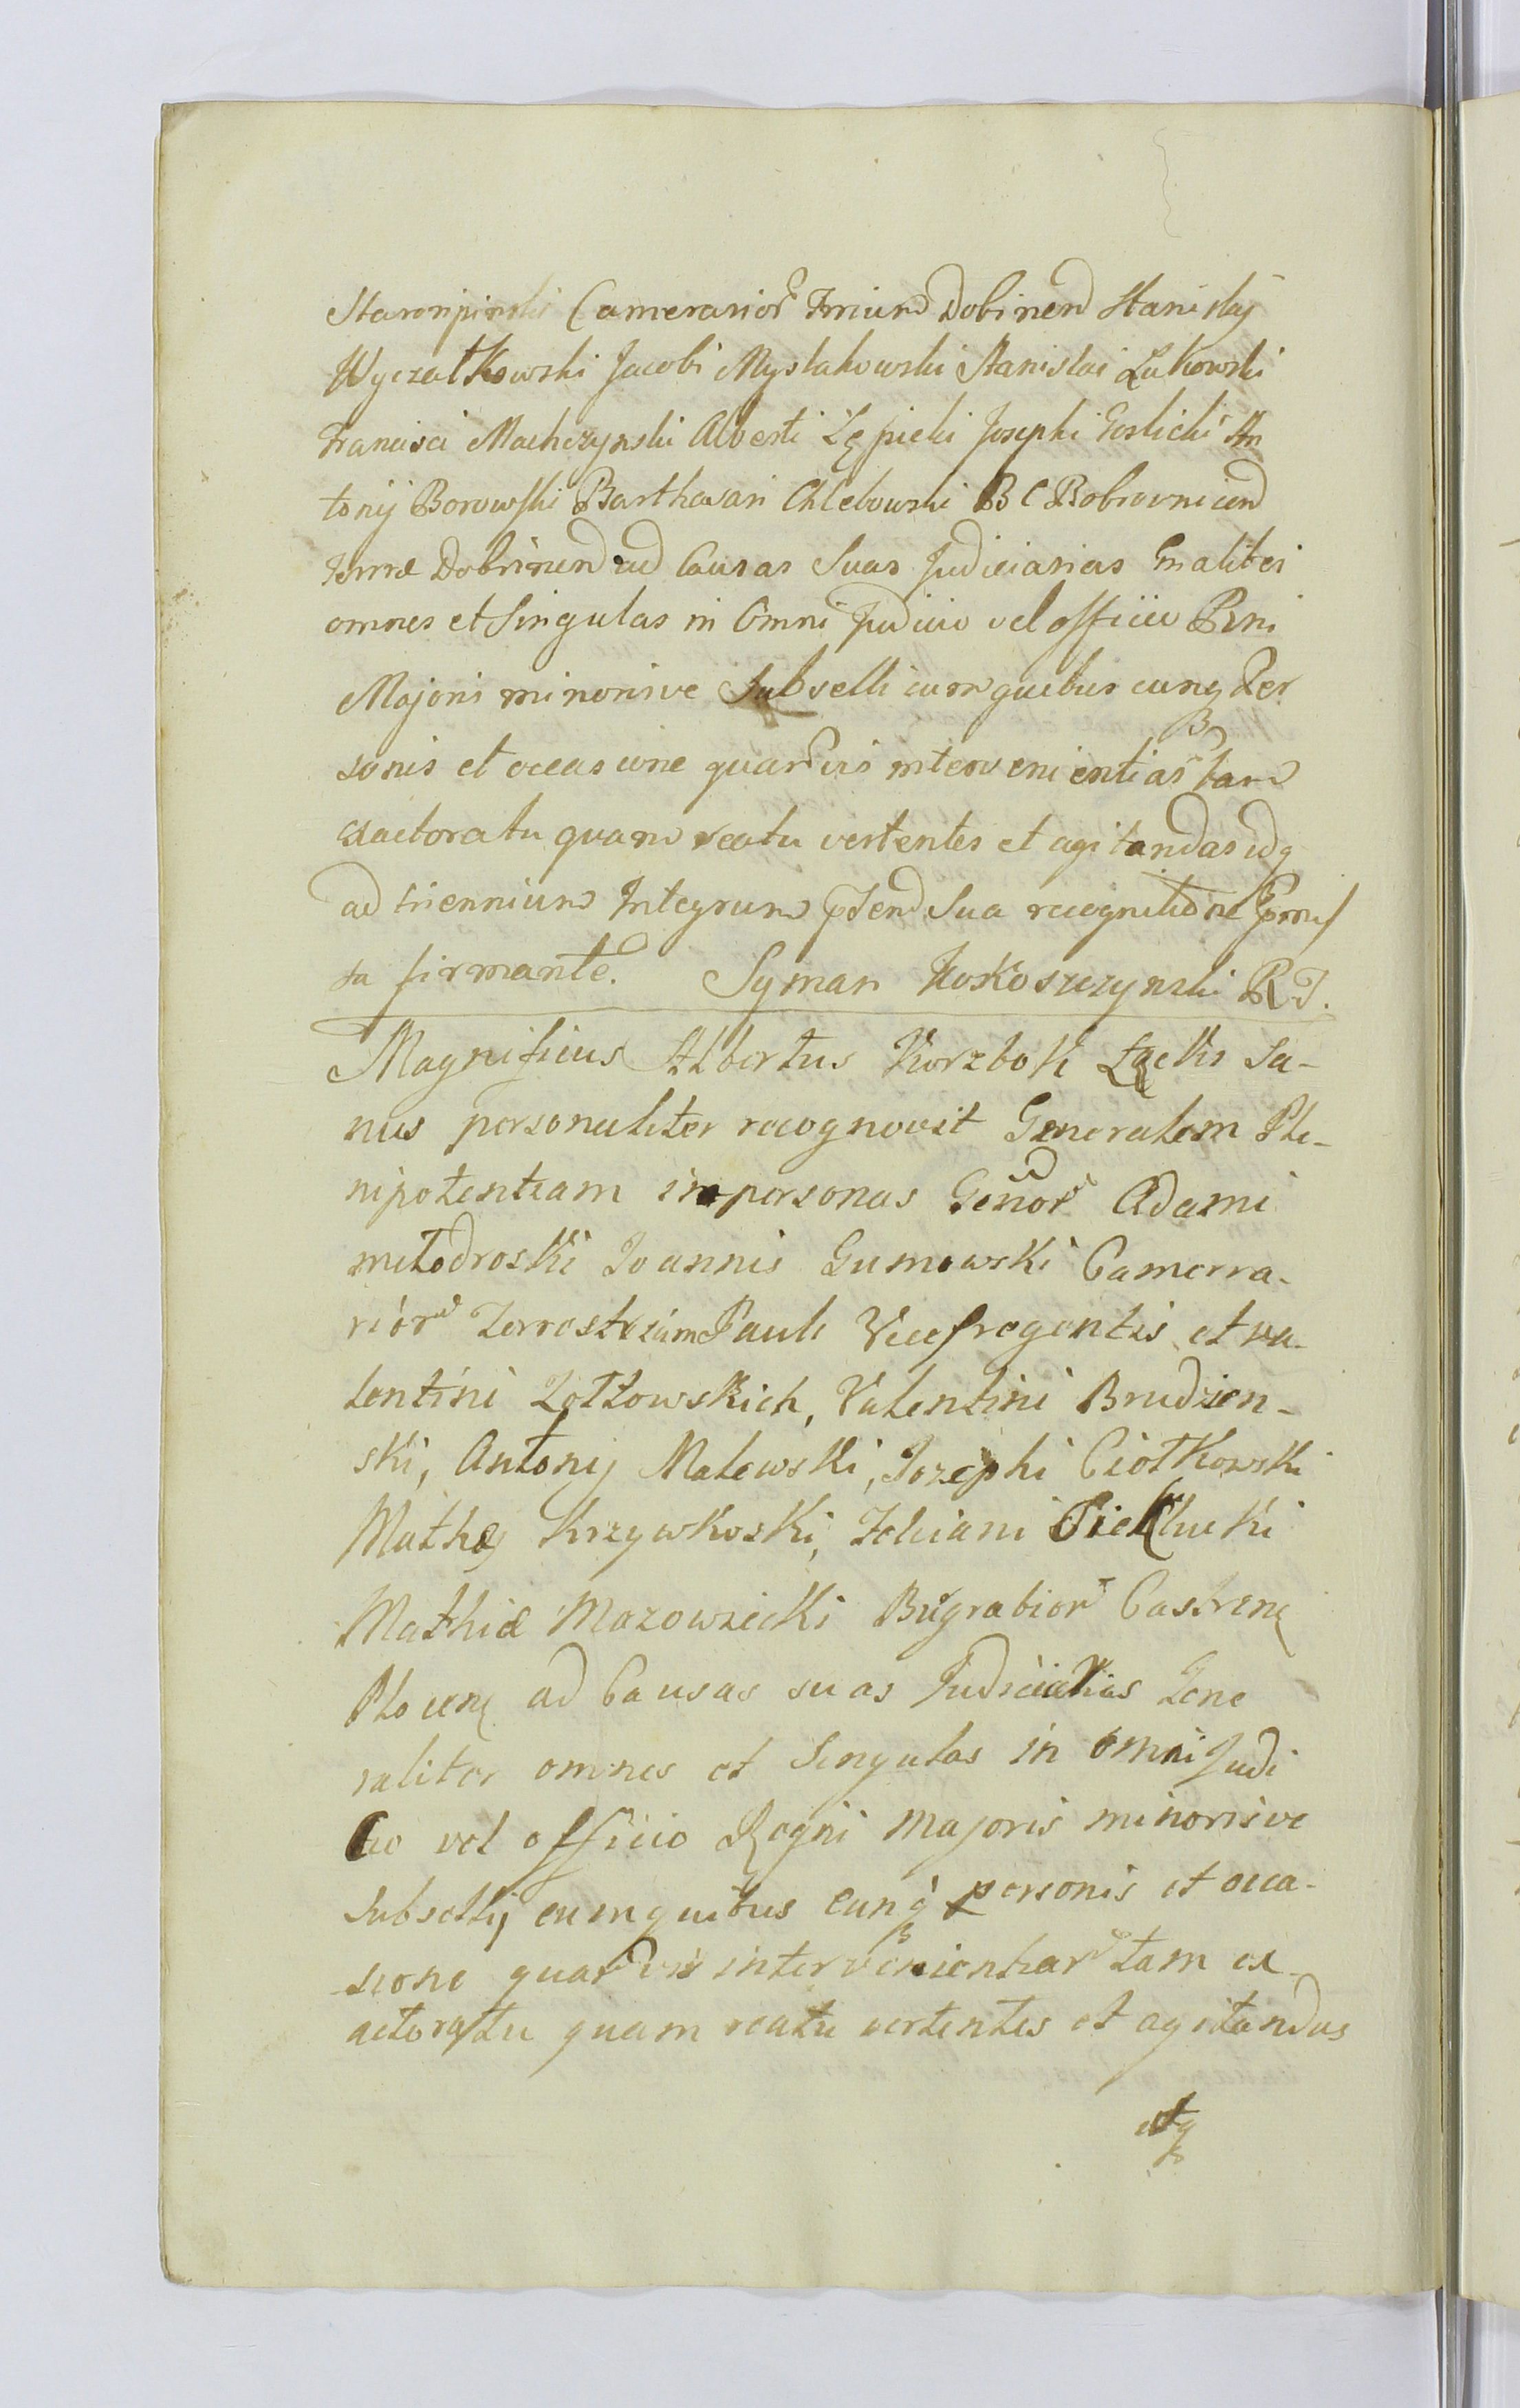 Staroripinski Camerarior Trrium Dobrinen Stanislaj
Wyczałkowski Jacobi Mysłakowski Stanislai Łukowski
Francisci Machczynski Alberti Zępicki Josephi Goslicki An
tonij Borowski Barthasari Chlebowski B C Bobrovnicen
Terræ Dobrinen ad Causas Suas Judiciarias Gnaliter
omnes et Singulas in Omni Judicio vel officio Rni
Majoris minorisve Subselli cum quibus cunq Per
sonis et occasione quarvis intervenientiar tam
exactoratu quam reatu vertentes et agitandas idq
ad triennium Integrum psen Sua recognitione
ta firmante. Syman Kokoszczynski R T.
Magnificus Albertus Korzbok Łącki Sa-
nus personaliter recognovit Generalem Ple-
nipotentiam in personas Genor Adami
milodroski Joannis Gumowski Camerra-
riór Terrestrium Pauli Vicesregentis et va-
lentini Zołtowskich, Valentini Brudzen-
ski, Antonij Malewski, Jozephi Ciótkowski
Mathæj Krzywkoski, Feliciani
Mathiæ Mazowiecki Bugrabior Castren
Plocen ad Causas suas Judiciarias Gene
raliter omnes et Singulas in omni Judi
cio vel officio Regni Majoris minorisve
Subsellij cum quibus cunq personis et occa-
sione quarvis intervenientiar tam ex
actoratu quam reatu vertentes et agitandas
idq